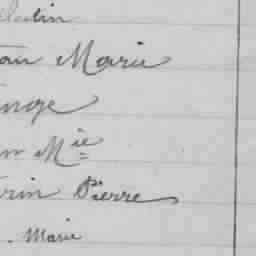 lestin
an Marie
ange
n Mie
rin Pierre
. Marie